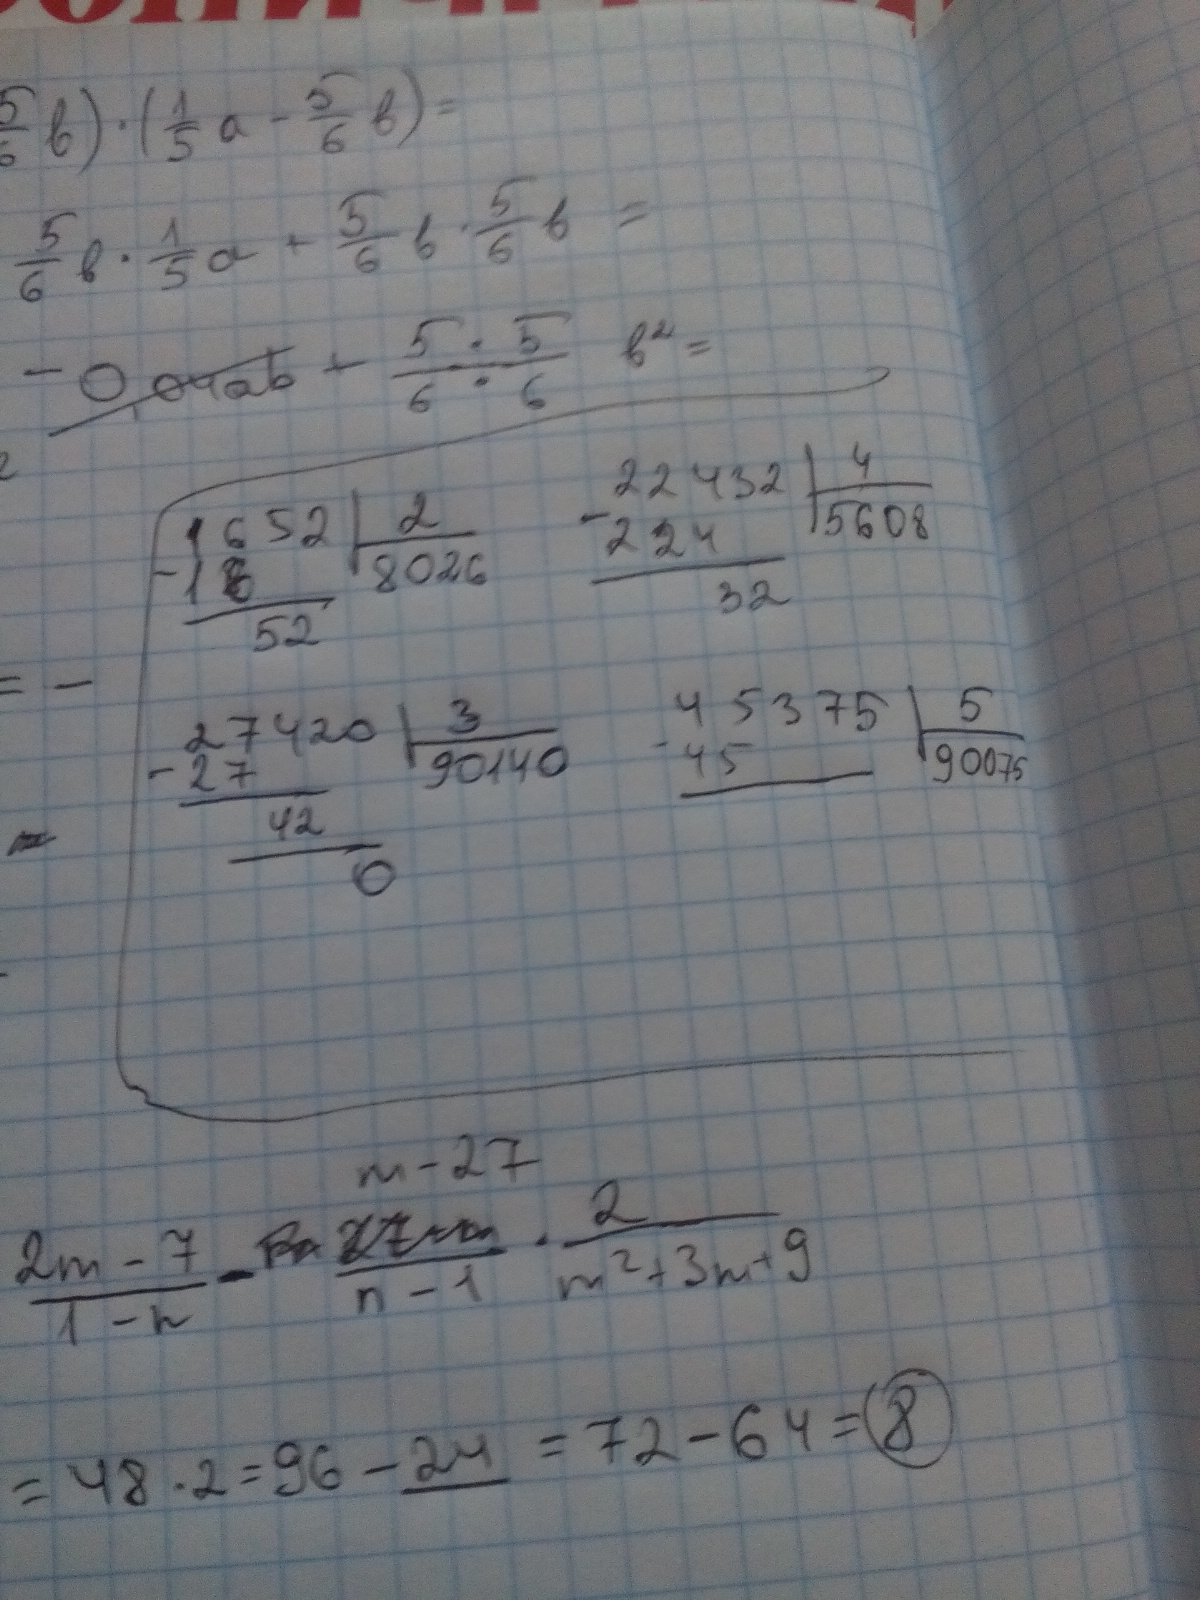 5/6 b) · (1/5 a - 5/6 b) =
5/6 b · 1/5 a + 5/6 b · 5/6 b =
- 0,04ab + 5 · 5 / 6 · 6 b² =
1652 | 2
- 16 | 8026
52
22432 | 4
- 224 | 5608
32
= -
27420 | 3
- 27 | 90140
42
0
45375 | 5
- 45 | 90075
m - 27
2m - 7 / 1 - n - / n - 1 · 2 / m² + 3m + 9
= 48 · 2 = 96 - 24 = 72 - 64 = 8